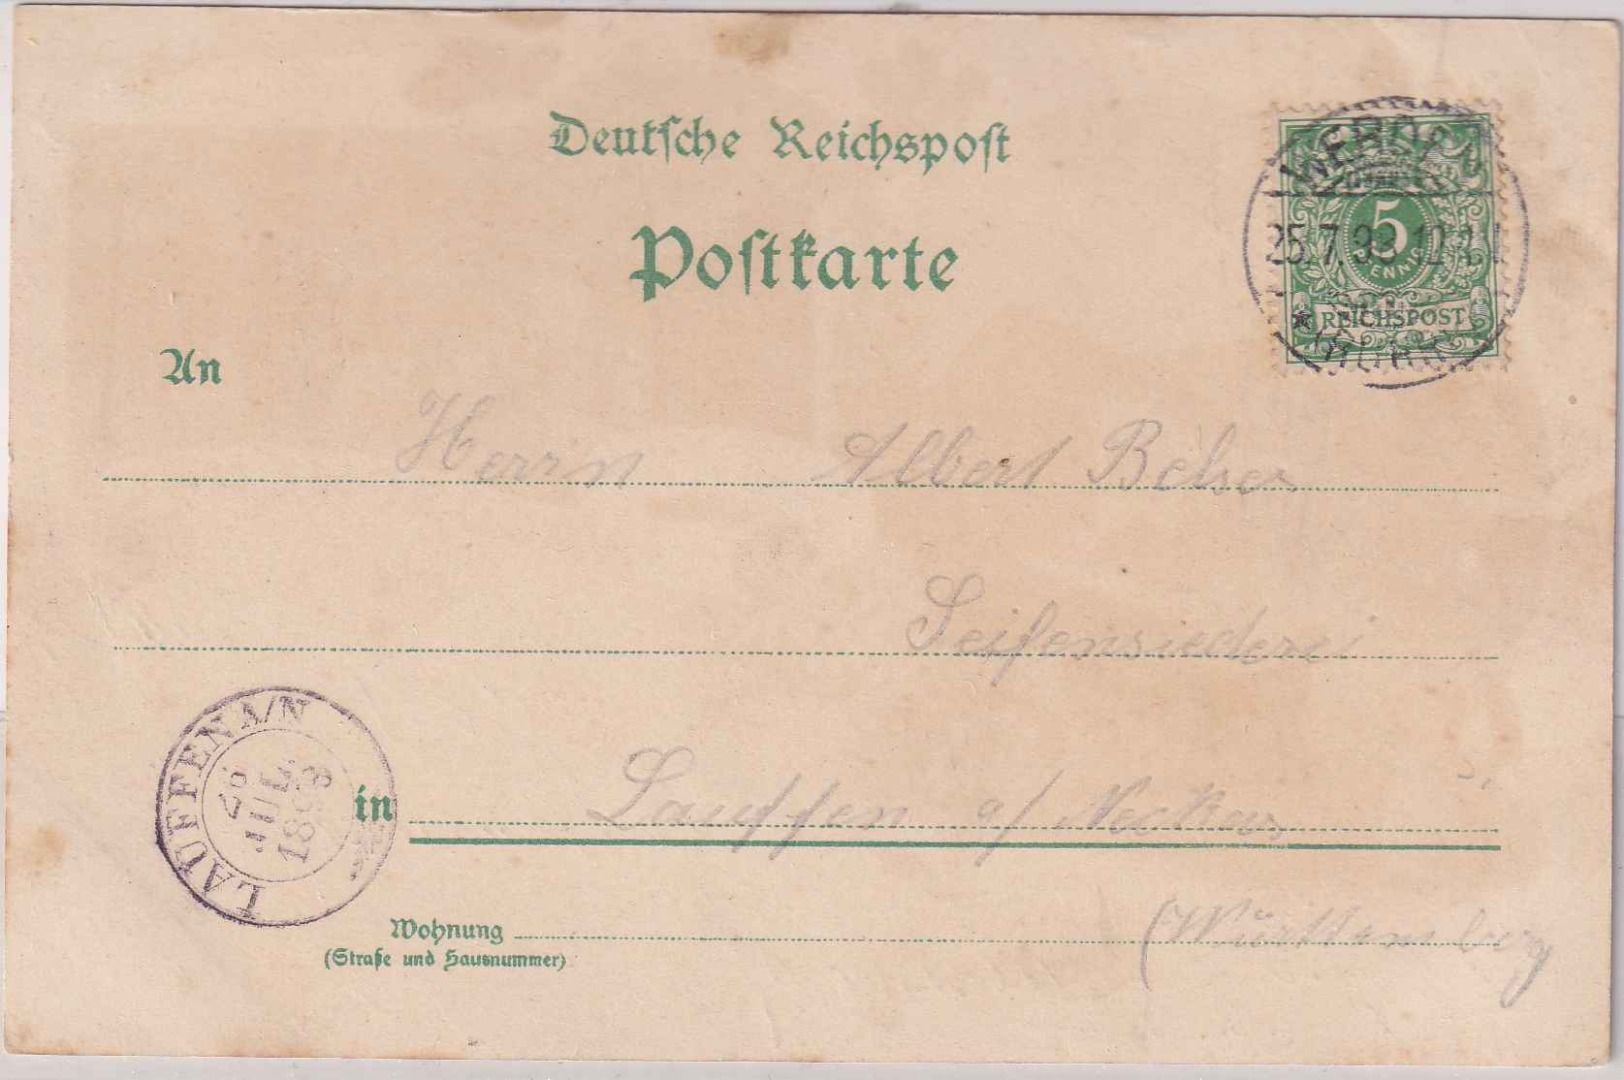 Deutsche Reichspost
Postkarte
5
PFENNIG
REICHSPOST
25.7.93.
An
Herrn Albert Belser
Seifensiederei
in Lauffen a/ Neckar
(Württemberg
LAUFFEN A/N
26
JUL
1893
Wohnung
(Straße und Hausnummer)